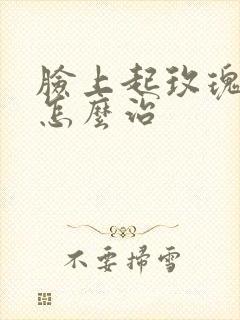 臉上起玫瑰
怎麼治
不要掃雪